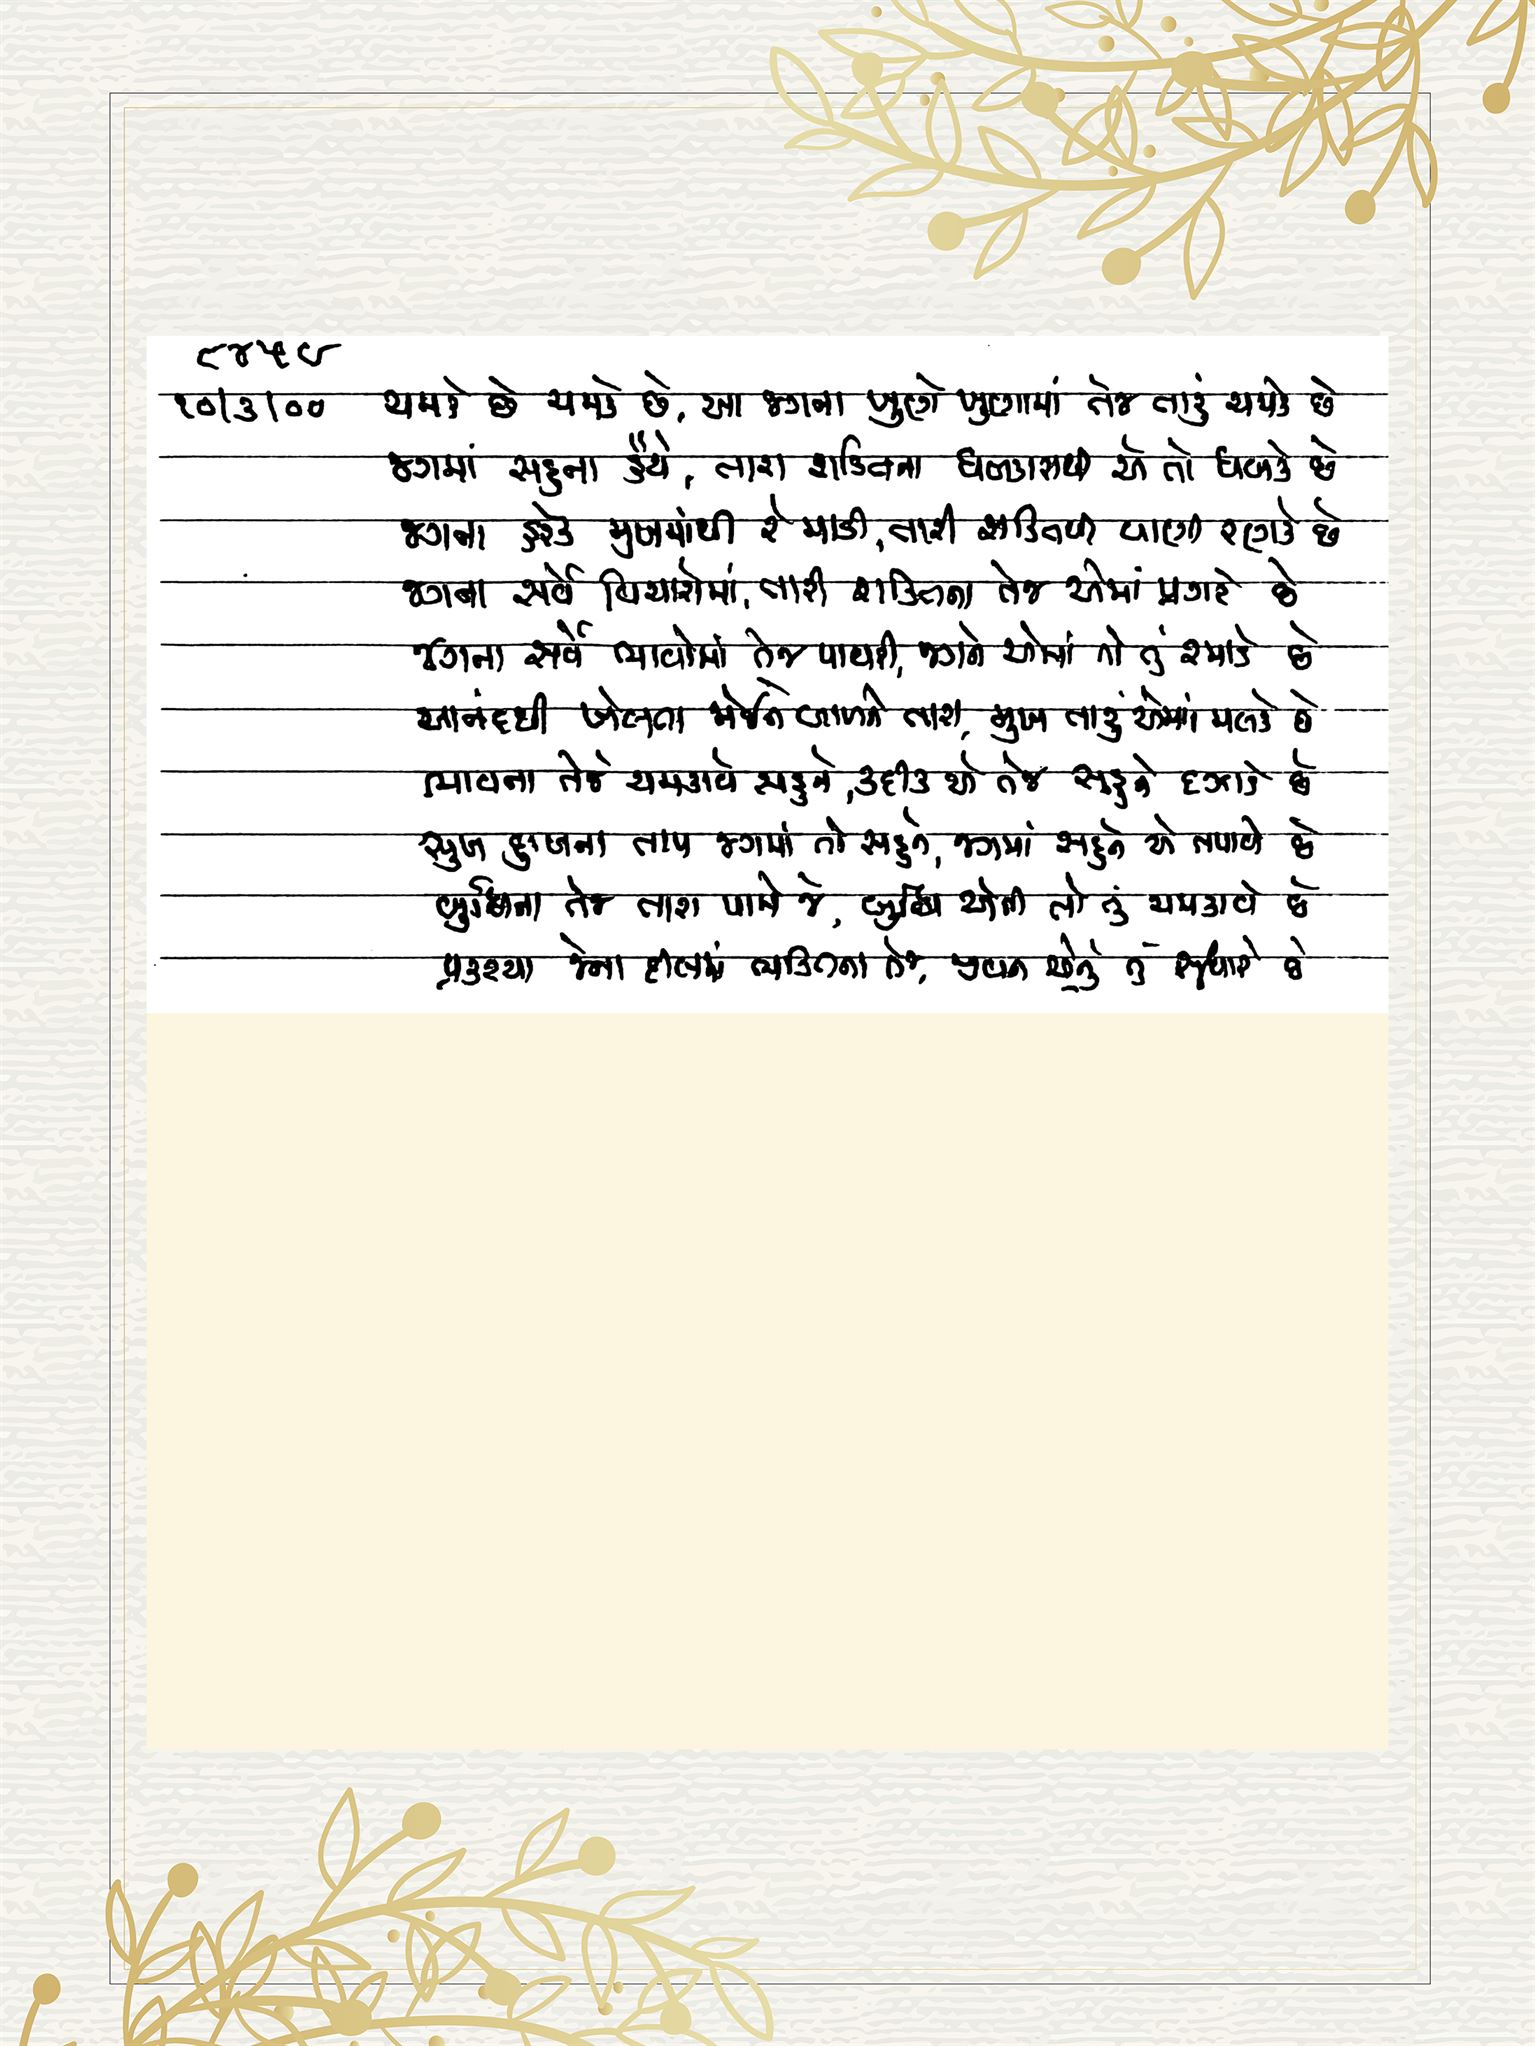 ૮૪૫૯
૧૦/૩/૦૦ ચમકે છે ચમકે છે, આ જગના ખુણે ખુણામાં તેજ તારું ચમકે છે
જગમાં સહુના હૈંયે, તારા શક્તિના ધબકારાથી એ તો ધબકે છે
જગના હરેક મુખમાંથી રે માડી, તારી શક્તિની વાણી રણકે છે
જગના સર્વે વિચારોમાં, તારી શક્તિના તેજ એમાં પ્રગટે છે
જગના સર્વે ભાવોમાં તેજ પાથરી, જગને એમાં તો તું રમાડે છે
આનંદથી ખેલતા જોઈને બાળને તારા, મુખ તારું એમાં મલકે છે
ભાવના તેજ ચમકાવે સહુને, કદીક એ તેજ સહુને દઝાડે છે
સુખ દુઃખના તાપ જગમાં તો સહુને, જગમાં સહુને એ તપાવે છે
બુદ્ધિના તેજ તારા પામે જે, બુદ્ધિ એની તો તું ચમકાવે છે
પ્રકટયા જેના દીલમાં ભક્તિના તેજ, જીવન એનું તું છે